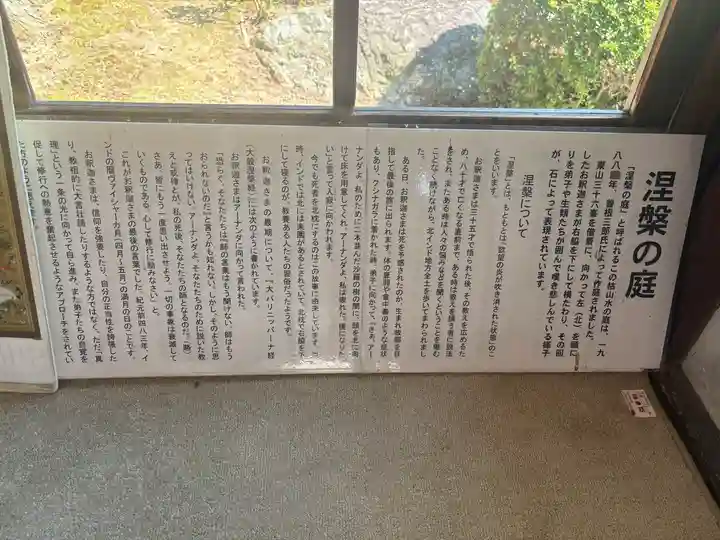 涅槃の庭
「涅槃の庭」と呼ばれるこの枯山水の庭は、一九
八八年、曽根三郎氏によって作庭されました。
東山三十六峯を借景に、向かって左（北）を頭に
したお釈迦さまが右脇を下にして横たわり、その回
りを弟子や生類たちが囲んで嘆き悲しんでいる様子
が、石によって表現されています。
涅槃について
「涅槃」とは、もともとは、欲望の炎が吹き消された状態のこ
とをいいます。
お釈迦さまは三十五才で悟られた後、その教えを広めるた
め、八十才で亡くなる直前まで、ある時は教えを請う者に説法
をされ、またある時は人々の悩みなどを聞くということを倦む
ことなく続けながら、北インド地方全土を歩いてまわられまし
た。
ある日、お釈迦さまは死を予感されたのか、生まれ故郷を目
指して最後の旅に出られます。体の衰弱や食中毒のような症状
もあり、クシナガラに着かれた時、弟子に向かって、「さあ、アー
ナンダよ、私のために二本並んだ沙羅の樹の間に、頭を北に向
けて床を用意してくれ。アーナンダよ、私は疲れた。横になりた
い」と言って人寂に向かわれます。
今でも死者を北枕にするのはこの故事に由来しています。当
時、インドでは北には楽園があるとされていて、北枕で右脇を下
にして寝るのが、教養ある人たちの習俗だったようです。
お釈迦さまの最期について、『大パリニッバーナ経
（大般涅槃経）』には次のように書かれています。
お釈迦さまはアーナンダに向かって言われた。
「恐らく、そなたたちは『師の言葉はもう聞けない。師はもう
おられないのだ』と言うかも知れない。しかし、そのように思
ってはいけない。アーナンダよ、そなたたちのために説いた教
えと戒律とが、私の死後、そなたたちの師となるのだ。（略）
さあ、皆にもう一度思い出させよう。一切の事象は衰滅して
いくものである。心して修行に励みなさい」と。
これがお釈迦さまの最後の言葉でした。紀元前四八三年、イ
ンドの暦のヴァイシャーカ月（四月～五月）の満月の日のことです。
お釈迦さまは、信仰を強要したり、自分の正当性を誇張した
り、教祖的に大言壮語したりするような方ではなく、ただ「真
理」という一条の光に向かって自ら進み、また弟子たちの自覚を
促して修行への熱意を奮起させるようなアプローチをされてい